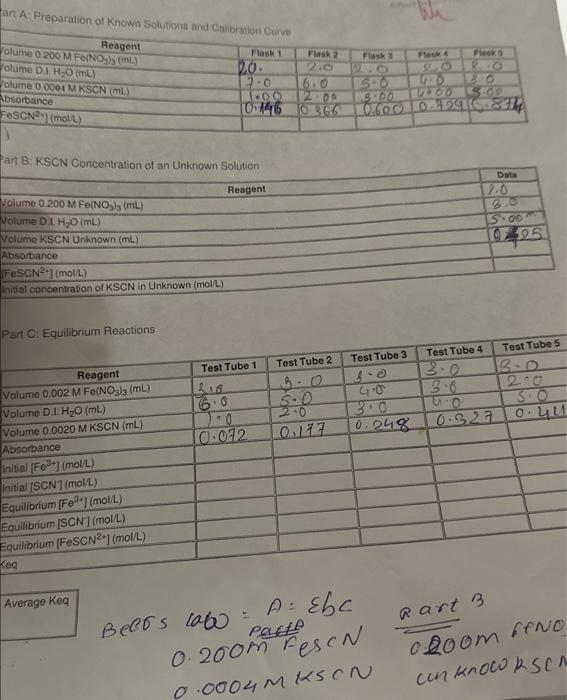 art A: Preparation of Known Solutions and Calibration Curve
Reagent Flask 1 Flask 2 Flask 3 Flask 4 Flask 5
Volume 0.200 M Fe(NO₃)₃ (mL) 2.0. 2.0 2.0 2.0 2.0
Volume D.I. H₂O (mL) 7.0 6.0 5.0 4.0 3.0
Volume 0.0004 M KSCN (mL) 1.00 2.00 3.00 4.00 5.00
Absorbance 0.196 0.366 0.600 0.729 0.874
FeSCN²⁺] (mol/L)
Part B: KSCN Concentration of an Unknown Solution
Reagent Data
Volume 0.200 M Fe(NO₃)₃ (mL) 2.0
Volume D.I. H₂O (mL) 3.0
Volume KSCN Unknown (mL) 5.00
Absorbance
[FeSCN²⁺] (mol/L)
Initial concentration of KSCN in Unknown (mol/L)
Part C: Equilibrium Reactions
Reagent Test Tube 1 Test Tube 2 Test Tube 3 Test Tube 4 Test Tube 5
Volume 0.002 M Fe(NO₃)₃ (mL) 3.0 3.0 3.0 3.0 3.0
Volume D.I. H₂O (mL) 6.0 5.0 4.0 3.0 2.0
Volume 0.0020 M KSCN (mL) 1.0 2.0 3.0 4.0 5.0
Absorbance 0.072 0.177 0.248 0.327 0.44
Initial [Fe³⁺] (mol/L)
Initial [SCN⁻] (mol/L)
Equilibrium [Fe³⁺] (mol/L)
Equilibrium [SCN⁻] (mol/L)
Equilibrium [FeSCN²⁺] (mol/L)
Keq
Average Keq
Beers law = A = Ebc
Part B
0.200m FescN
0.200m FeNO
0.0004 M KSCN
unknown KSCN